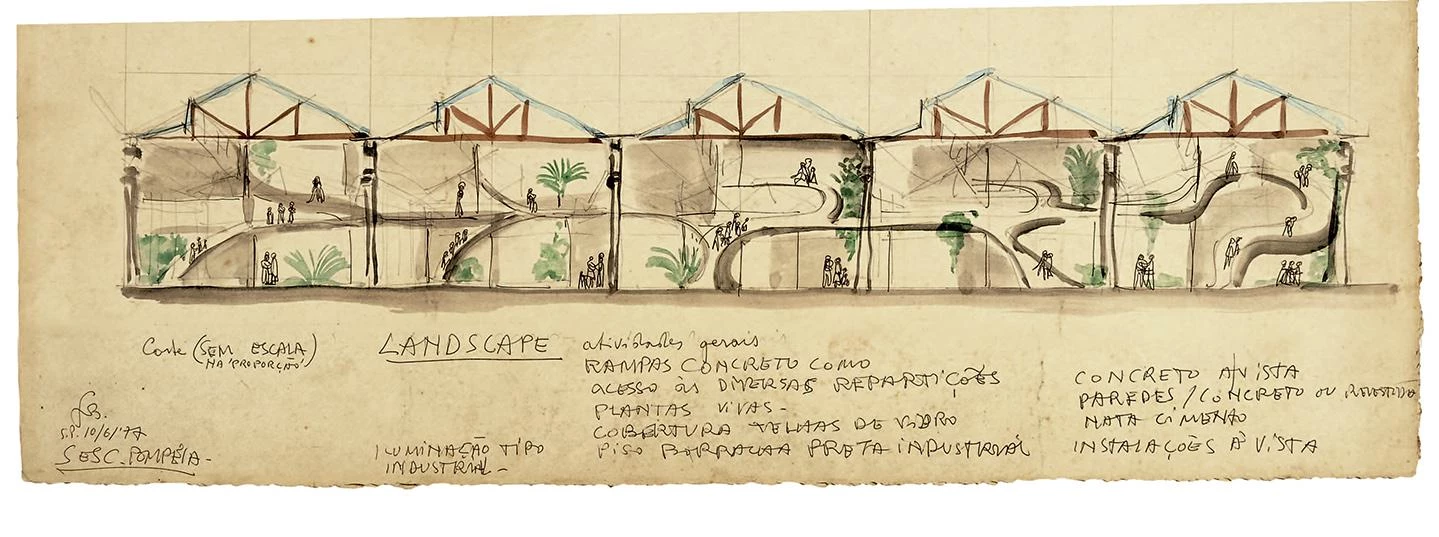 Corte (SEM ESCALA
NA PROPORÇÃO)
LB.
S.P. 10/6/77
SESC. POMPÉIA -
LANDSCAPE
ILUMINAÇÃO TIPO
INDUSTRIAL -
atividades gerais
RAMPAS CONCRETO COMO
ACESSO ÀS DIVERSAS REPARTIÇÕES
PLANTAS VIVAS -
COBERTURA TELHAS DE VIDRO
PISO BORRACHA PRETA INDUSTRIAL
CONCRETO A VISTA
PAREDES / CONCRETO OU REVESTIDO
NATA CIMENTO
INSTALAÇÕES À VISTA